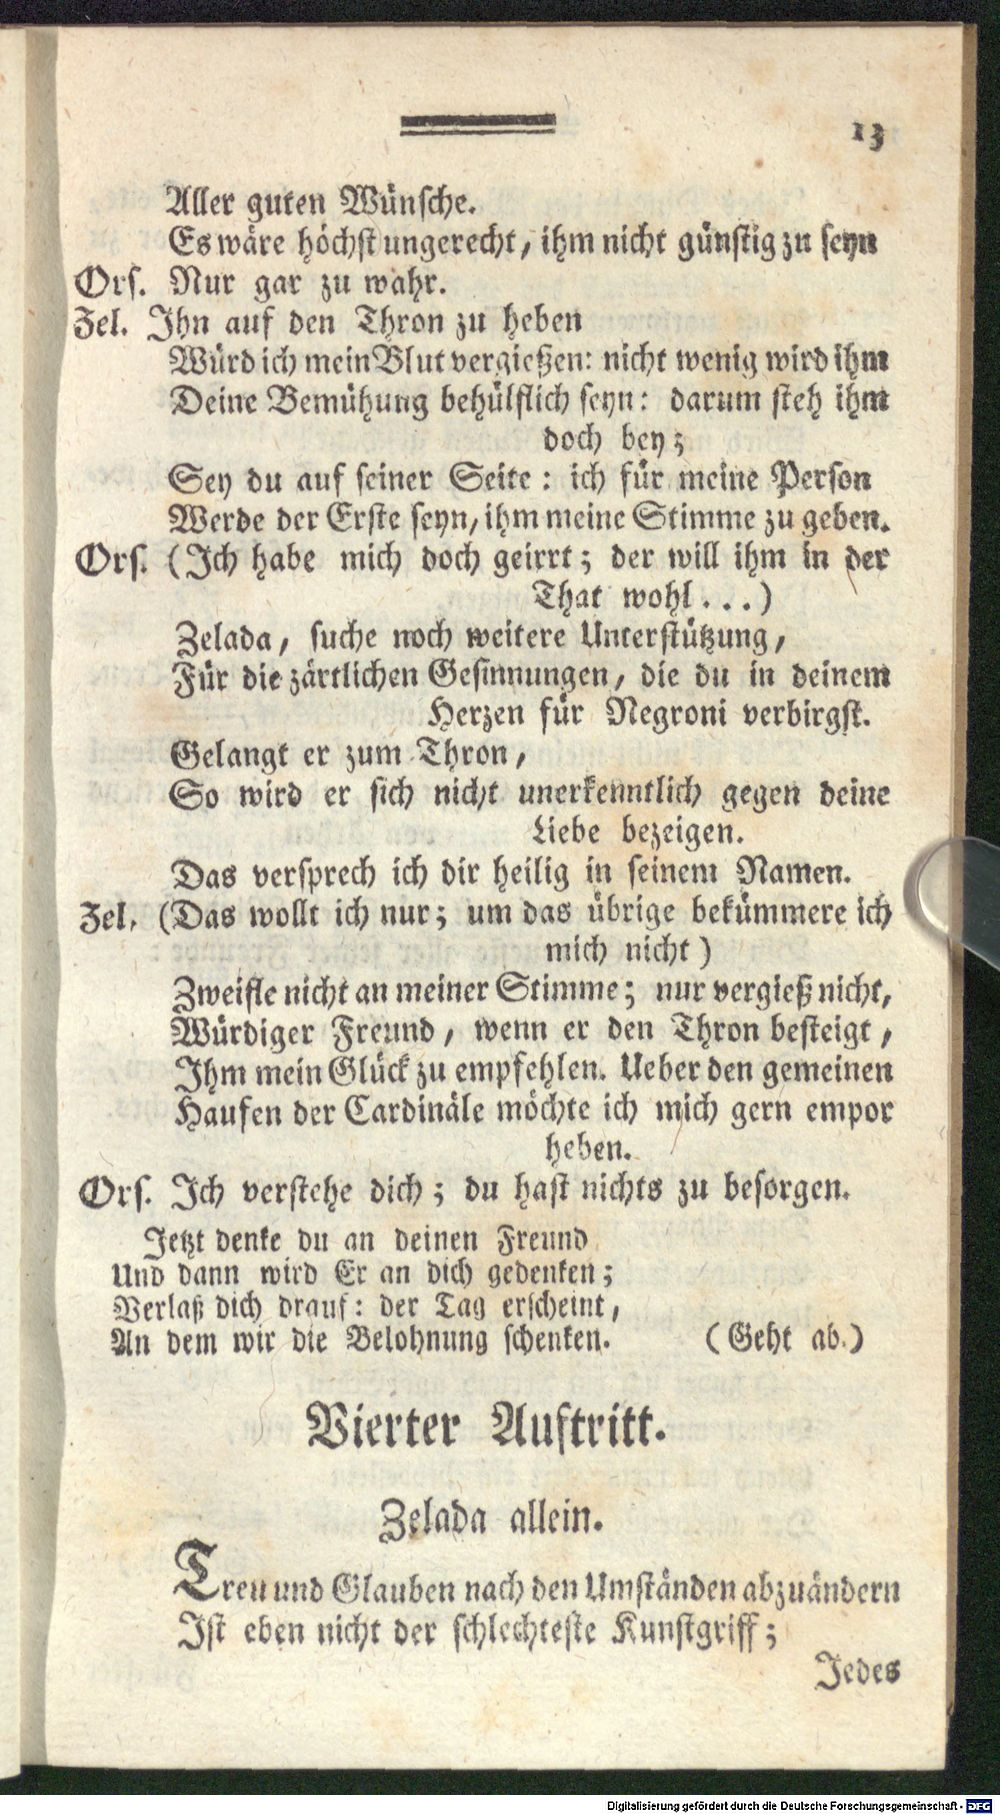 13
Aller guten Wünsche.
Es wäre höchst ungerecht, ihm nicht günstig zu seyn
Ors. Nur gar zu wahr.
Zel. Ihn auf den Thron zu heben
Würd ich mein Blut vergießen: nicht wenig wird ihm
Deine Bemühung behülflich seyn: darum steh ihm
doch bey;
Sey du auf seiner Seite: ich für meine Person
Werde der Erste seyn, ihm meine Stimme zu geben.
Ors. (Ich habe mich doch geirrt; der will ihm in der
That wohl...)
Zelada, suche noch weitere Unterstützung,
Für die zärtlichen Gesinnungen, die du in deinem
Herzen für Negroni verbirgst.
Gelangt er zum Thron,
So wird er sich nicht unerkenntlich gegen deine
Liebe bezeigen.
Das versprech ich dir heilig in seinem Namen.
Zel. (Das wollt ich nur; um das übrige bekümmere ich
mich nicht)
Zweifle nicht an meiner Stimme; nur vergieß nicht,
Würdiger Freund, wenn er den Thron besteigt,
Ihm mein Glück zu empfehlen. Ueber den gemeinen
Haufen der Cardinäle möchte ich mich gern empor
heben.
Ors. Ich verstehe dich; du hast nichts zu besorgen.
Jetzt denke du an deinen Freund
Und dann wird Er an dich gedenken;
Verlaß dich drauf: der Tag erscheint,
An dem wir die Belohnung schenken. (Geht ab.)
Vierter Auftritt.
Zelada allein.
Treu und Glauben nach den Umständen abzuändern
Ist eben nicht der schlechteste Kunstgriff;
Jedes
Digitalisierung gefördert durch die Deutsche Forschungsgemeinschaft - DFG